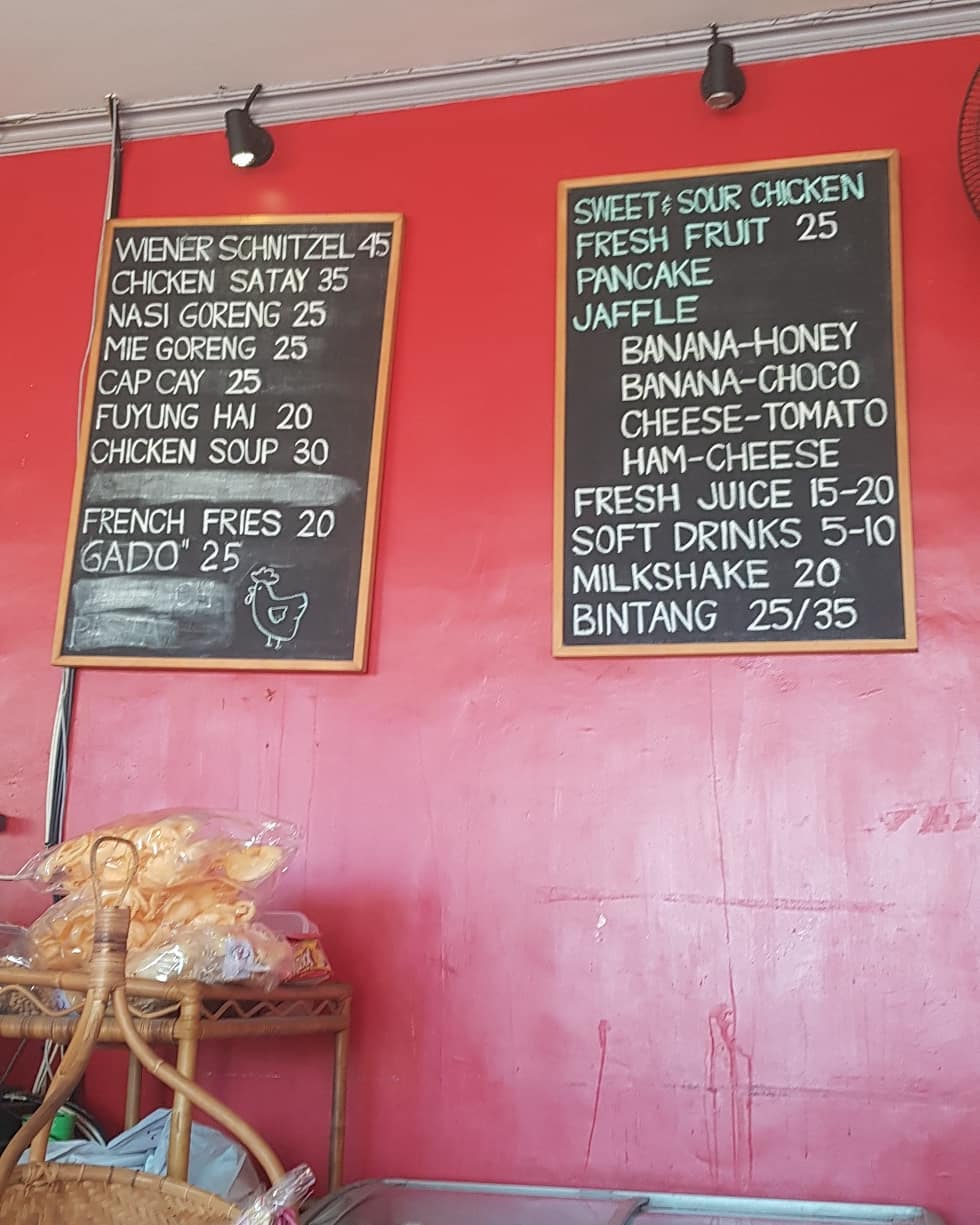 WIENER SCHNITZEL 45
CHICKEN SATAY 35
NASI GORENG 25
MIE GORENG 25
CAP CAY 25
FUYUNG HAI 20
CHICKEN SOUP 30
FRENCH FRIES 20
GADO" 25
SWEET & SOUR CHICKEN
FRESH FRUIT 25
PANCAKE
JAFFLE
BANANA-HONEY
BANANA-CHOCO
CHEESE-TOMATO
HAM-CHEESE
FRESH JUICE 15-20
SOFT DRINKS 5-10
MILKSHAKE 20
BINTANG 25/35